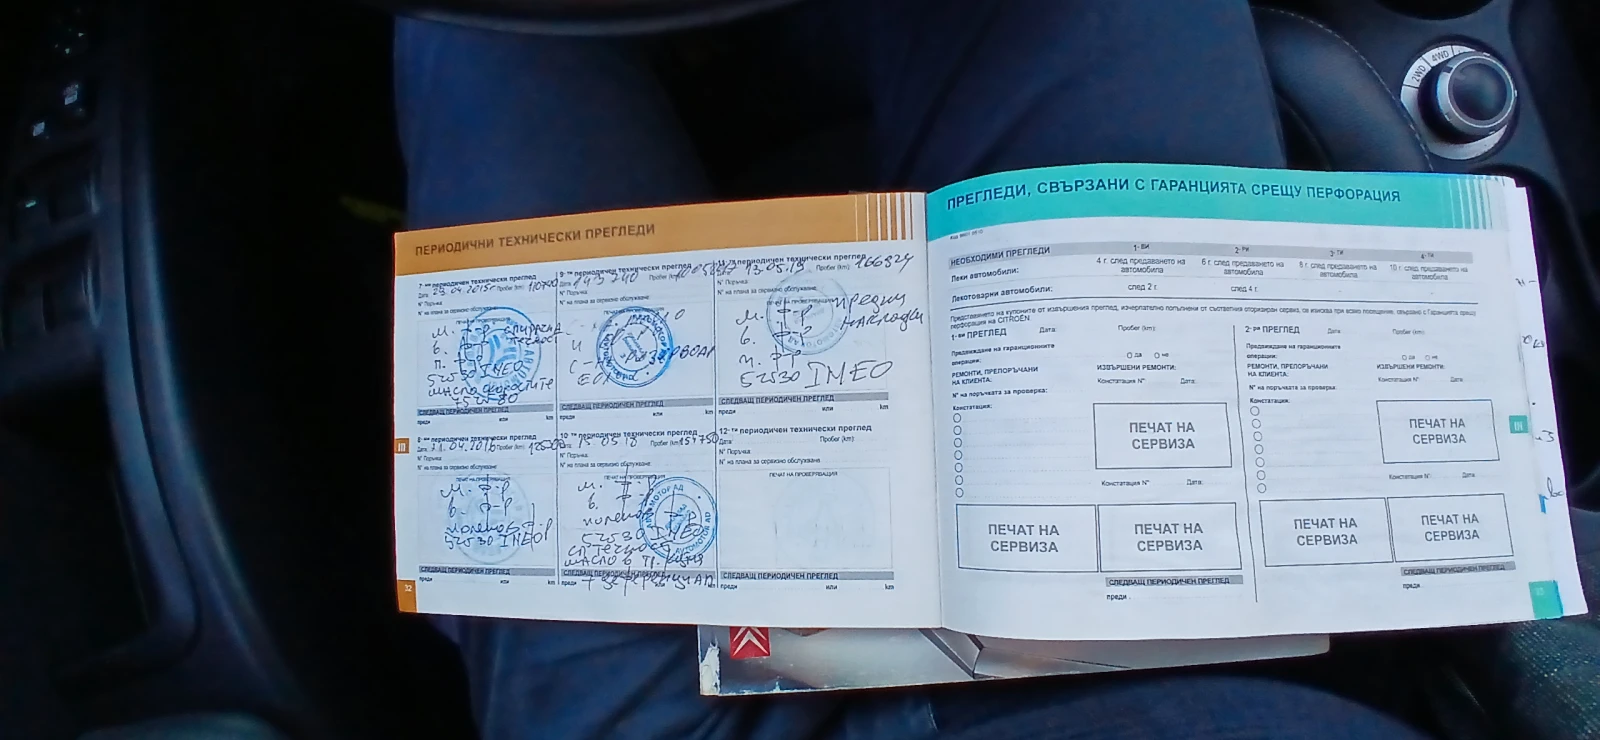 ПЕРИОДИЧНИ ТЕХНИЧЕСКИ ПРЕГЛЕДИ
7-ми периодичен технически преглед
Дата: 23.04.2015г Пробег (km): 110700
N° Поръчка:
N° на плана за сервизно обслужване:
м. ф-р спирачна
в. ф-р течност
п. ф-р
5W30 INEO
масло скоростите
75W80
СЛЕДВАЩ ПЕРИОДИЧЕН ПРЕГЛЕД
преди или km
8-ми периодичен технически преглед
Дата: 21.04.2016 Пробег (km):
N° Поръчка:
N° на плана за сервизно обслужване
ПЕЧАТ НА ПРОВЕРЯВАЩИЯ
м. ф-р
в. ф-р
поленов ф-р
5W30 INEO
СЛЕДВАЩ ПЕРИОДИЧЕН ПРЕГЛЕД
преди или km
9-ти периодичен технически преглед
143240 Пробег (km):
N° Поръчка:
N° на плана за сервизно обслужване:
СЛЕДВАЩ ПЕРИОДИЧЕН ПРЕГЛЕД
преди или km
10-ти периодичен технически преглед
Дата: 15.05.18 Пробег (km): 154750
N° Поръчка:
N° на плана за сервизно обслужване
ПЕЧАТ НА ПРОВЕРЯВАЩИЯ
м. ф-р
в. ф-р
поленов ф-р
5W30 INEO
сп. течност
масло в
СЛЕДВАЩ ПЕРИОДИЧЕН ПРЕГЛЕД
преди или
периодичен технически преглед
13.05.19 Пробег (km): 166324
N° Поръчка:
N° на плана за сервизно обслужване
м. ф-р предни
в. ф-р накладки
п. ф-р
5W30 INEO
СЛЕДВАЩ ПЕРИОДИЧЕН ПРЕГЛЕД
преди или km
12-ти периодичен технически преглед
Дата: Пробег (km):
N° Поръчка:
N° на плана за сервизно обслужване
ПЕЧАТ НА ПРОВЕРЯВАЩИЯ
СЛЕДВАЩ ПЕРИОДИЧЕН ПРЕГЛЕД
преди или km
III
32
ПРЕГЛЕДИ, СВЪРЗАНИ С ГАРАНЦИЯТА СРЕЩУ ПЕРФОРАЦИЯ
НЕОБХОДИМИ ПРЕГЛЕДИ 1-ви 2-ри 3-ти 4-ти
Леки автомобили: 4 г. след предаването на автомобила 6 г. след предаването на автомобила 8 г. след предаването на автомобила 10 г. след предаването на автомобила
Лекотоварни автомобили: след 2 г. след 4 г.
Представянето на купоните от извършения преглед, изчерпателно попълнени от съответния оторизиран сервиз, се изисква при всяко посещение, свързано с Гаранцията срещу
перфорация на CITROËN.
1-ви ПРЕГЛЕД Дата: Пробег (km):
Предвиждане на гаранционните
операции: да не
РЕМОНТИ, ПРЕПОРЪЧАНИ
НА КЛИЕНТА:
ИЗВЪРШЕНИ РЕМОНТИ:
Констатация N° Дата:
N° на поръчката за проверка:
Констатации:
ПЕЧАТ НА
СЕРВИЗА
Констатация N° Дата:
ПЕЧАТ НА
СЕРВИЗА
ПЕЧАТ НА
СЕРВИЗА
СЛЕДВАЩ ПЕРИОДИЧЕН ПРЕГЛЕД
преди
2-ри ПРЕГЛЕД Дата: Пробег (km):
Предвиждане на гаранционните
операции: да не
РЕМОНТИ, ПРЕПОРЪЧАНИ
НА КЛИЕНТА:
ИЗВЪРШЕНИ РЕМОНТИ:
Констатация N° Дата:
N° на поръчката за проверка:
Констатации:
ПЕЧАТ НА
СЕРВИЗА
Констатация N° Дата:
ПЕЧАТ НА
СЕРВИЗА
ПЕЧАТ НА
СЕРВИЗА
СЛЕДВАЩ ПЕРИОДИЧЕН ПРЕГЛЕД
преди
III
33
2WD
4WD